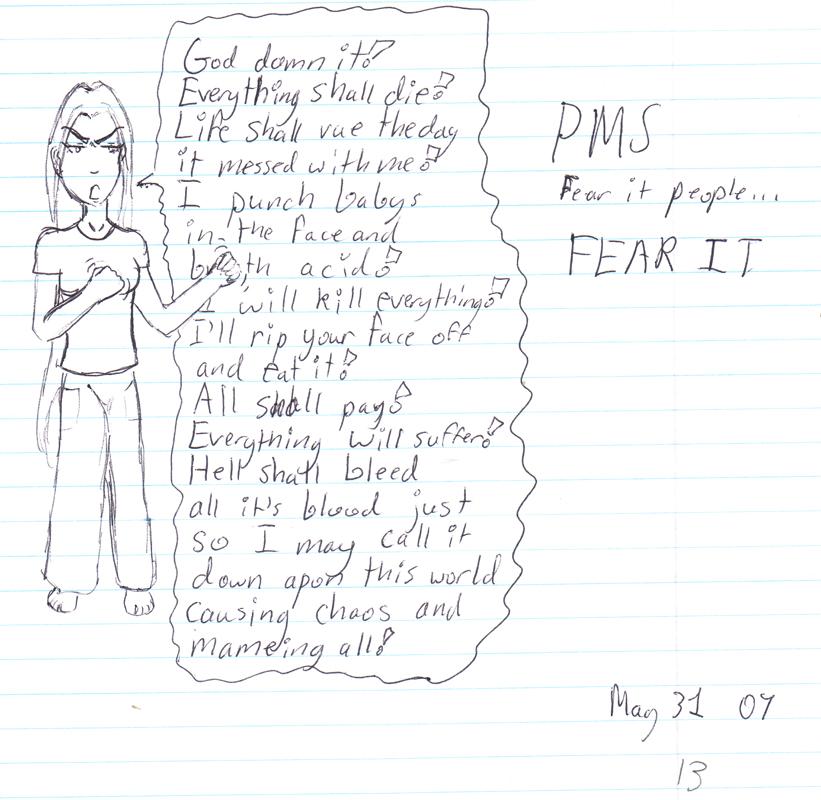 God damn it!
Everything shall die!
Life shall rue the day
it messed with me!
I punch babys
in the face and
breath acid!
I will kill everything!
I'll rip your face off
and eat it!
All shall pay!
Everything will suffer!
Hell shall bleed
all it's blood just
so I may call it
down apon this world
causing chaos and
mameing all!
PMS
Fear it people...
FEAR IT
May 31 07
13